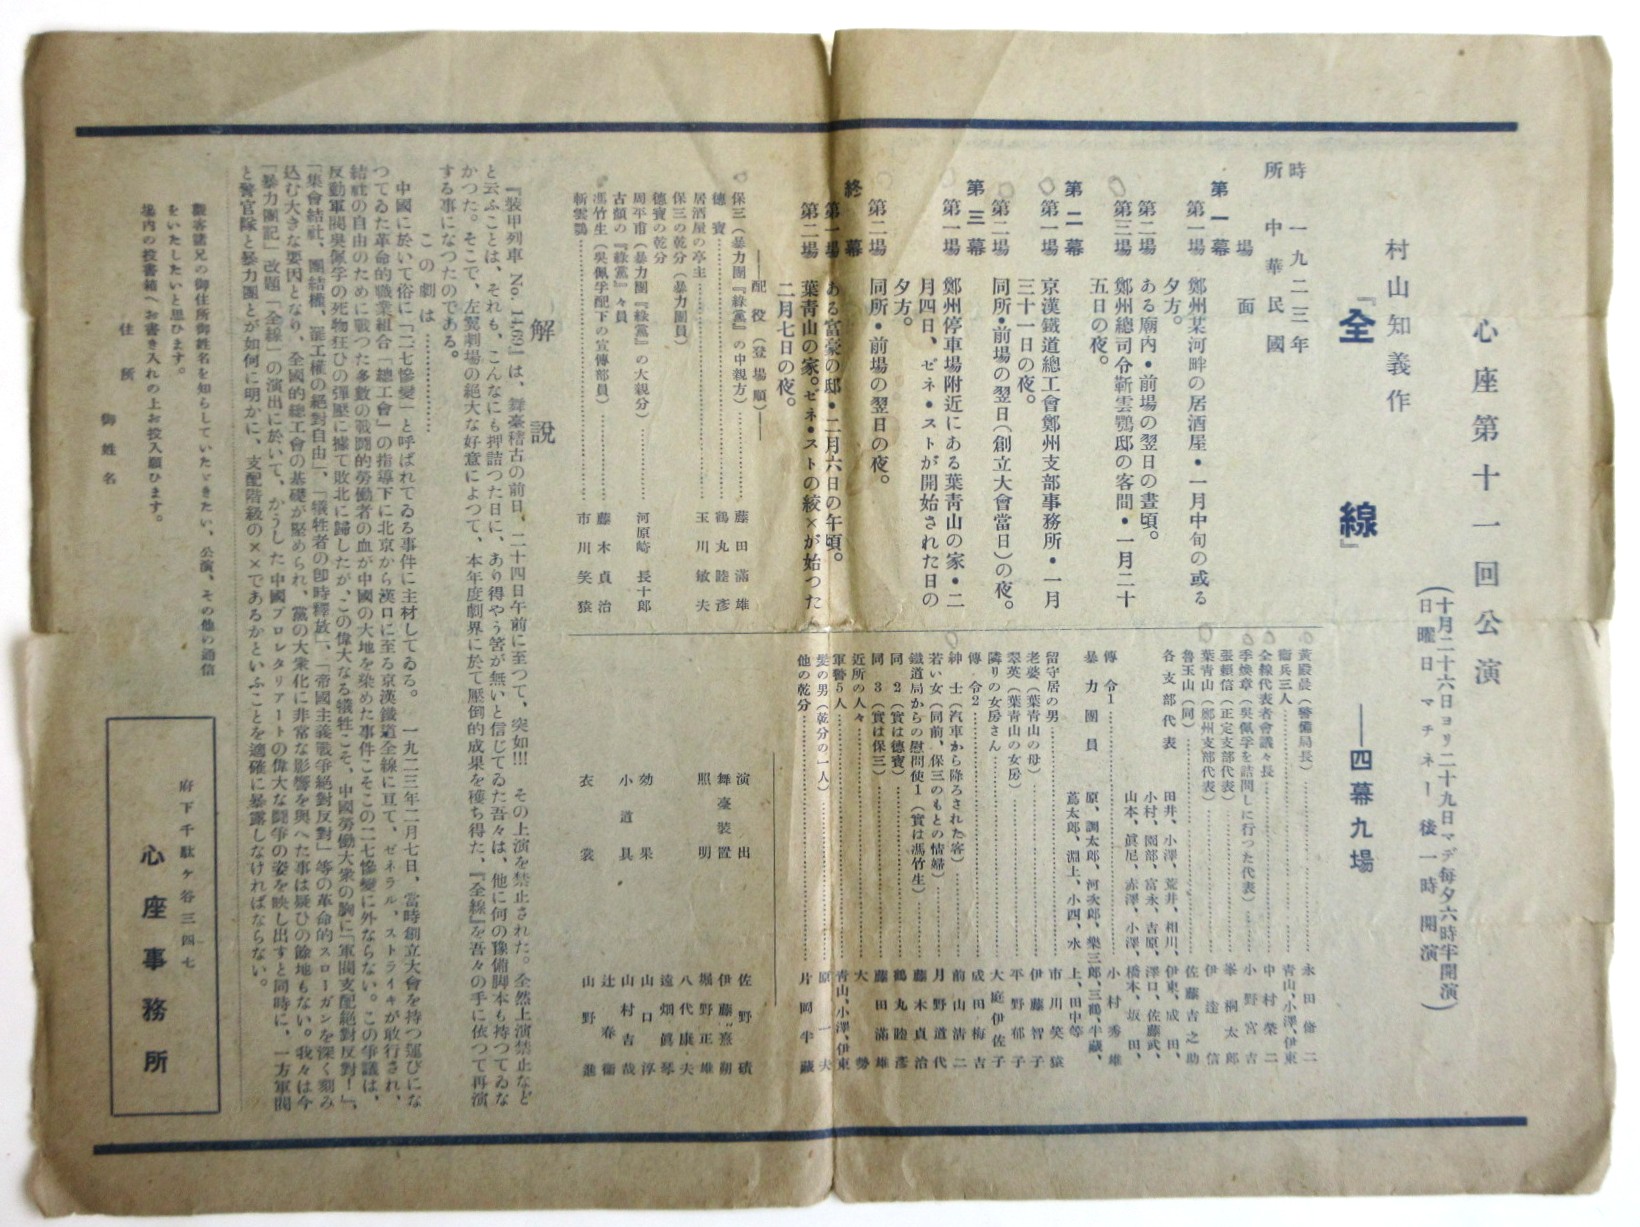 心座第十一回公演
(十月二十六日ヨリ二十九日マデ毎夕六時半開演)
日曜日マチネー後一時開演
村山知義作
『全線』
——四幕九場
時 一九二三年
所 中華民國
場面
第一幕
第一場 鄭州某河畔の居酒屋・一月中旬の或る
夕方。
第二場 ある廟内・前場の翌日の晝頃。
第三場 鄭州總司令靳雲鶚邸の客間・一月二十
五日の夜。
第二幕
第一場 京漢鐵道總工會鄭州支部事務所・一月
三十一日の夜。
第二場 同所・前場の翌日(創立大會當日)の夜。
第三幕
第一場 鄭州停車場附近にある葉青山の家・二
月四日、ゼネ・ストが開始された日の
夕方。
第二場 同所・前場の翌日の夜。
終幕
第一場 ある富豪の邸・二月六日の午頃。
第二場 葉靑山の家。ゼネ・ストの絞×が始つた
二月七日の夜。
——配役(登場順)——
保三(暴力團『綠黨』の中親方)……藤田滿雄
德寶……鶴丸睦彦
居酒屋の亭主……玉川敏夫
保三の乾分(暴力團員)
德寶の乾分
周平甫(暴力團『綠黨』の大親分)……河原崎長十郎
古顏の『綠黨』々員
馮竹生(吳佩孚配下の宣傳部員)……藤木貞治
靳雲鶚……市川笑猿
黃殿晨(警備局長)……永田脩二
衞兵三人……靑山、小澤、伊東
全線代表者會議々長……中村榮二
李煥章(吳佩孚を詰問しに行つた代表)……小野宮吉
張賴信(正定支部代表)……峯桐太郎
葉靑山(鄭州支部代表)……伊達信
魯玉山(同)……佐藤吉之助
各支部代表 田井、小澤、荒井、相川、伊東、成田、
小村、園部、富永、吉原、澤口、佐藤武、
山本、眞尼、赤澤、小澤、橋本、坂田、
傳令1……小村秀雄
暴力團員 原、調太郎、河次郎、樂三郎、三鶴、牛藏、
蔦太郎、淵上、小四、水上、田中等
留守居の男……市川笑猿
老婆(葉靑山の母)……伊藤智子
翠英(葉靑山の女房)……平野郁子
隣りの女房さん……大庭伊佐子
傳令2……成田梅吉
紳士(汽車から降ろされた客)……前山淸二
若い女(同前、保三のもとの情婦)……月野道代
鐵道局からの慰問使1(實は馮竹生)……藤木貞治
同2(實は德寶)……鶴丸睦彦
同3(實は保三)……藤田滿雄
近所の人々……大勢
軍警5人……靑山、小澤、伊東
髪の男(乾分の一人)……原一夫
他の乾分……片岡半藏
演出 佐野碩
舞臺裝置 伊藤熹朔
照明 堀野正雄
八代康夫
遠畑眞琴
効果 山口淳
小道具 山村吉哉
辻春衞
衣裳 山野進
解説
『裝甲列車 No. 1469』は、舞臺稽古の前日、二十四日午前に至つて、突如!!! その上演を禁止された。全然上演禁止など
と云ふことは、それも、こんなにも押詰つた日に、あり得やう筈が無いと信じてゐた吾々は、他に何の豫備脚本も持つてゐな
かつた。そこで、左翼劇場の絕大な好意によつて、本年度劇界に於て壓倒的成果を穫ち得た、『全線』を吾々の手に依つて再演
する事になつたのである。
この劇は…………
中國に於いて俗に「二七慘變」と呼ばれてゐる事件に主材してゐる。 一九二三年二月七日、當時創立大會を持つ運びにな
つてゐた革命的職業組合「總工會」の指導下に北京から漢口に至る京漢鐵道全線に亙て、ゼネラル、ストライキが敢行され、
結社の自由のために戰つた多數の戰鬪的勞働者の血が中國の大地を染めた事件こそこの二七慘變に外ならない。この爭議は、
反動軍閥吳佩孚の死物狂ひの彈壓に據て敗北に歸したが、この偉大なる犧牲こそ、中國勞働大衆の胸に「軍閥支配絕對反對!」、
「集會結社、團結權、罷工權の絕對自由」、「犧牲者の卽時釋放」、「帝國主義戰爭絕對反對」等の革命的スローガンを深く刻み
込む大きな要因となり、全國的總工會の基礎が堅められ、黨の大衆化に非常な影響を與へた事は疑ひの餘地もない。我々は今
「暴力團記」改題「全線」の演出に於いて、かうした中國プロレタリアートの偉大な鬪爭の姿を映し出すと同時に、一方軍閥
と警官隊と暴力團とが如何に明かに、支配階級の××であるかといふことを適確に暴露しなければならない。
觀客諸兄の御住所御姓名を知らしていたゞきたい、公演、その他の通信
をいたしたいと思ひます。
場內の投書箱へお書き入れの上お投入願ひます。
住所
御姓名
府下千駄ヶ谷三四七
心座事務所